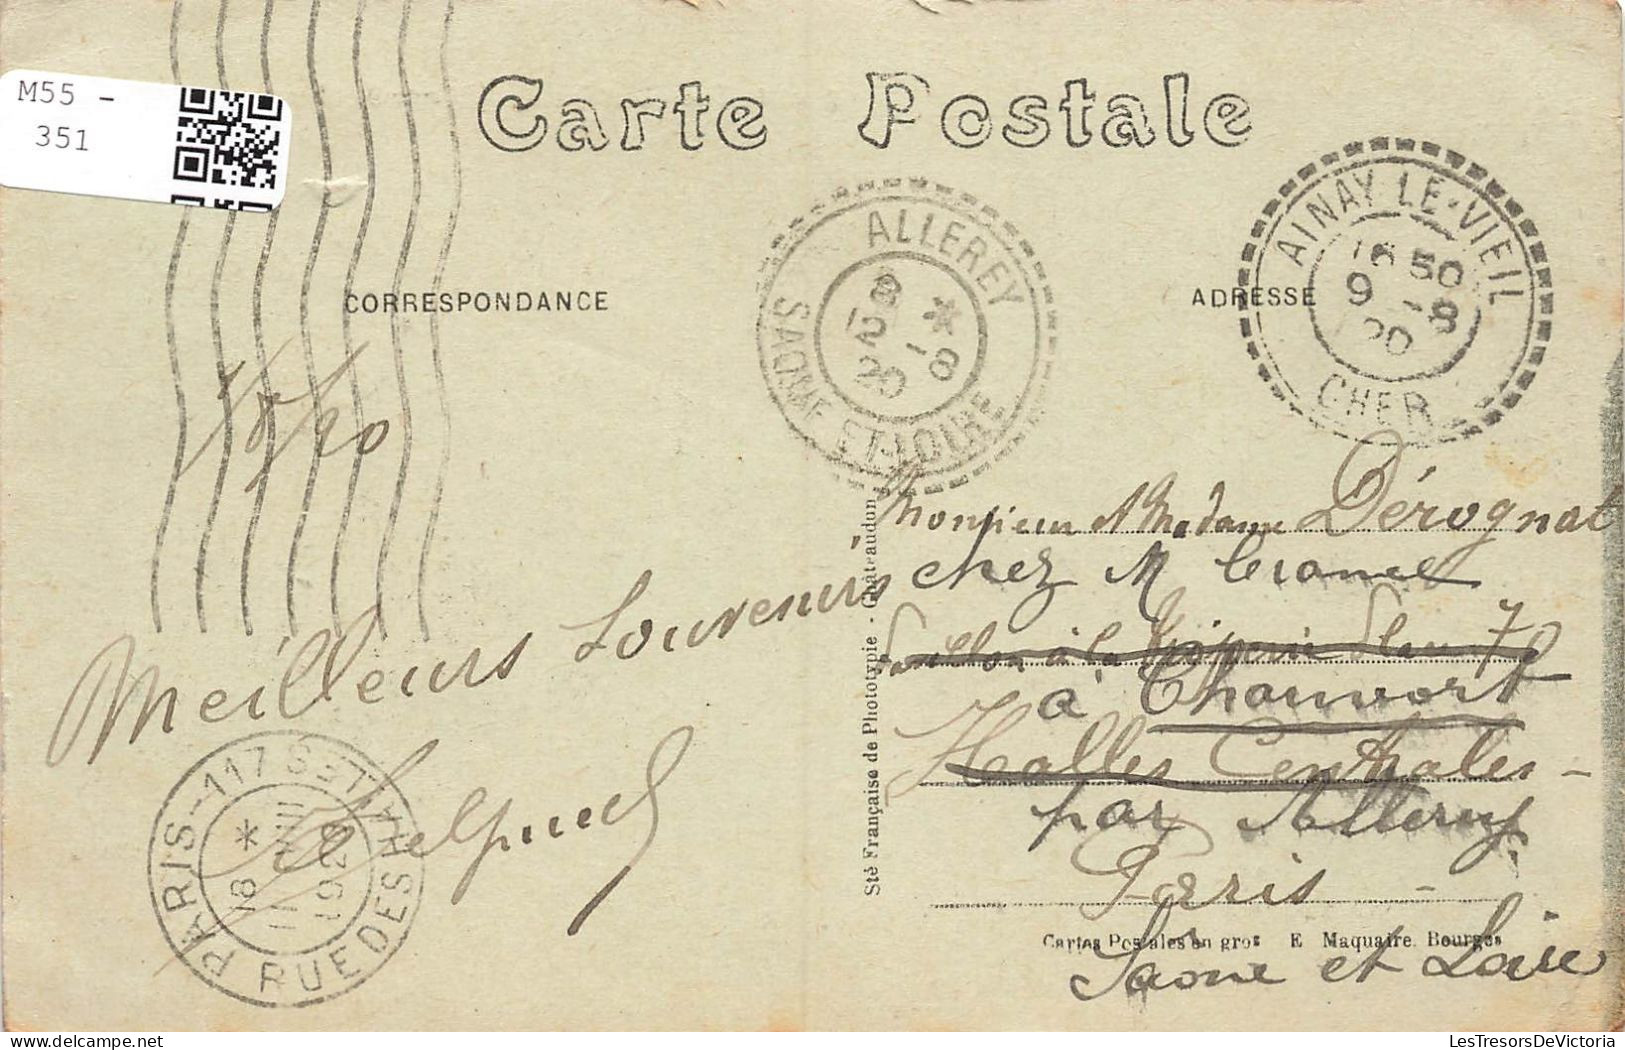 M55 -
351
Carte Postale
ALLEREY
SAONE ET-LOIRE
8 *
12 -8
20
AINAY-LE-VIEIL
CHER
16 50
9 -8
20
CORRESPONDANCE
ADRESSE
/8/20
Meilleurs Souvenirs
Monsieur et Madame Dérognat
chez M
à la 7
à Chauvort
Halles Centrales -
par Allerey
Paris -
Saone et Loire
PARIS-117
RUE DES HALLES
* 18
11 VIII
1920
Sté Française de Phototypie - Châteaudun
Cartes Postales en gros E Maquaire. Bourges
LesTresorsDeVictoria